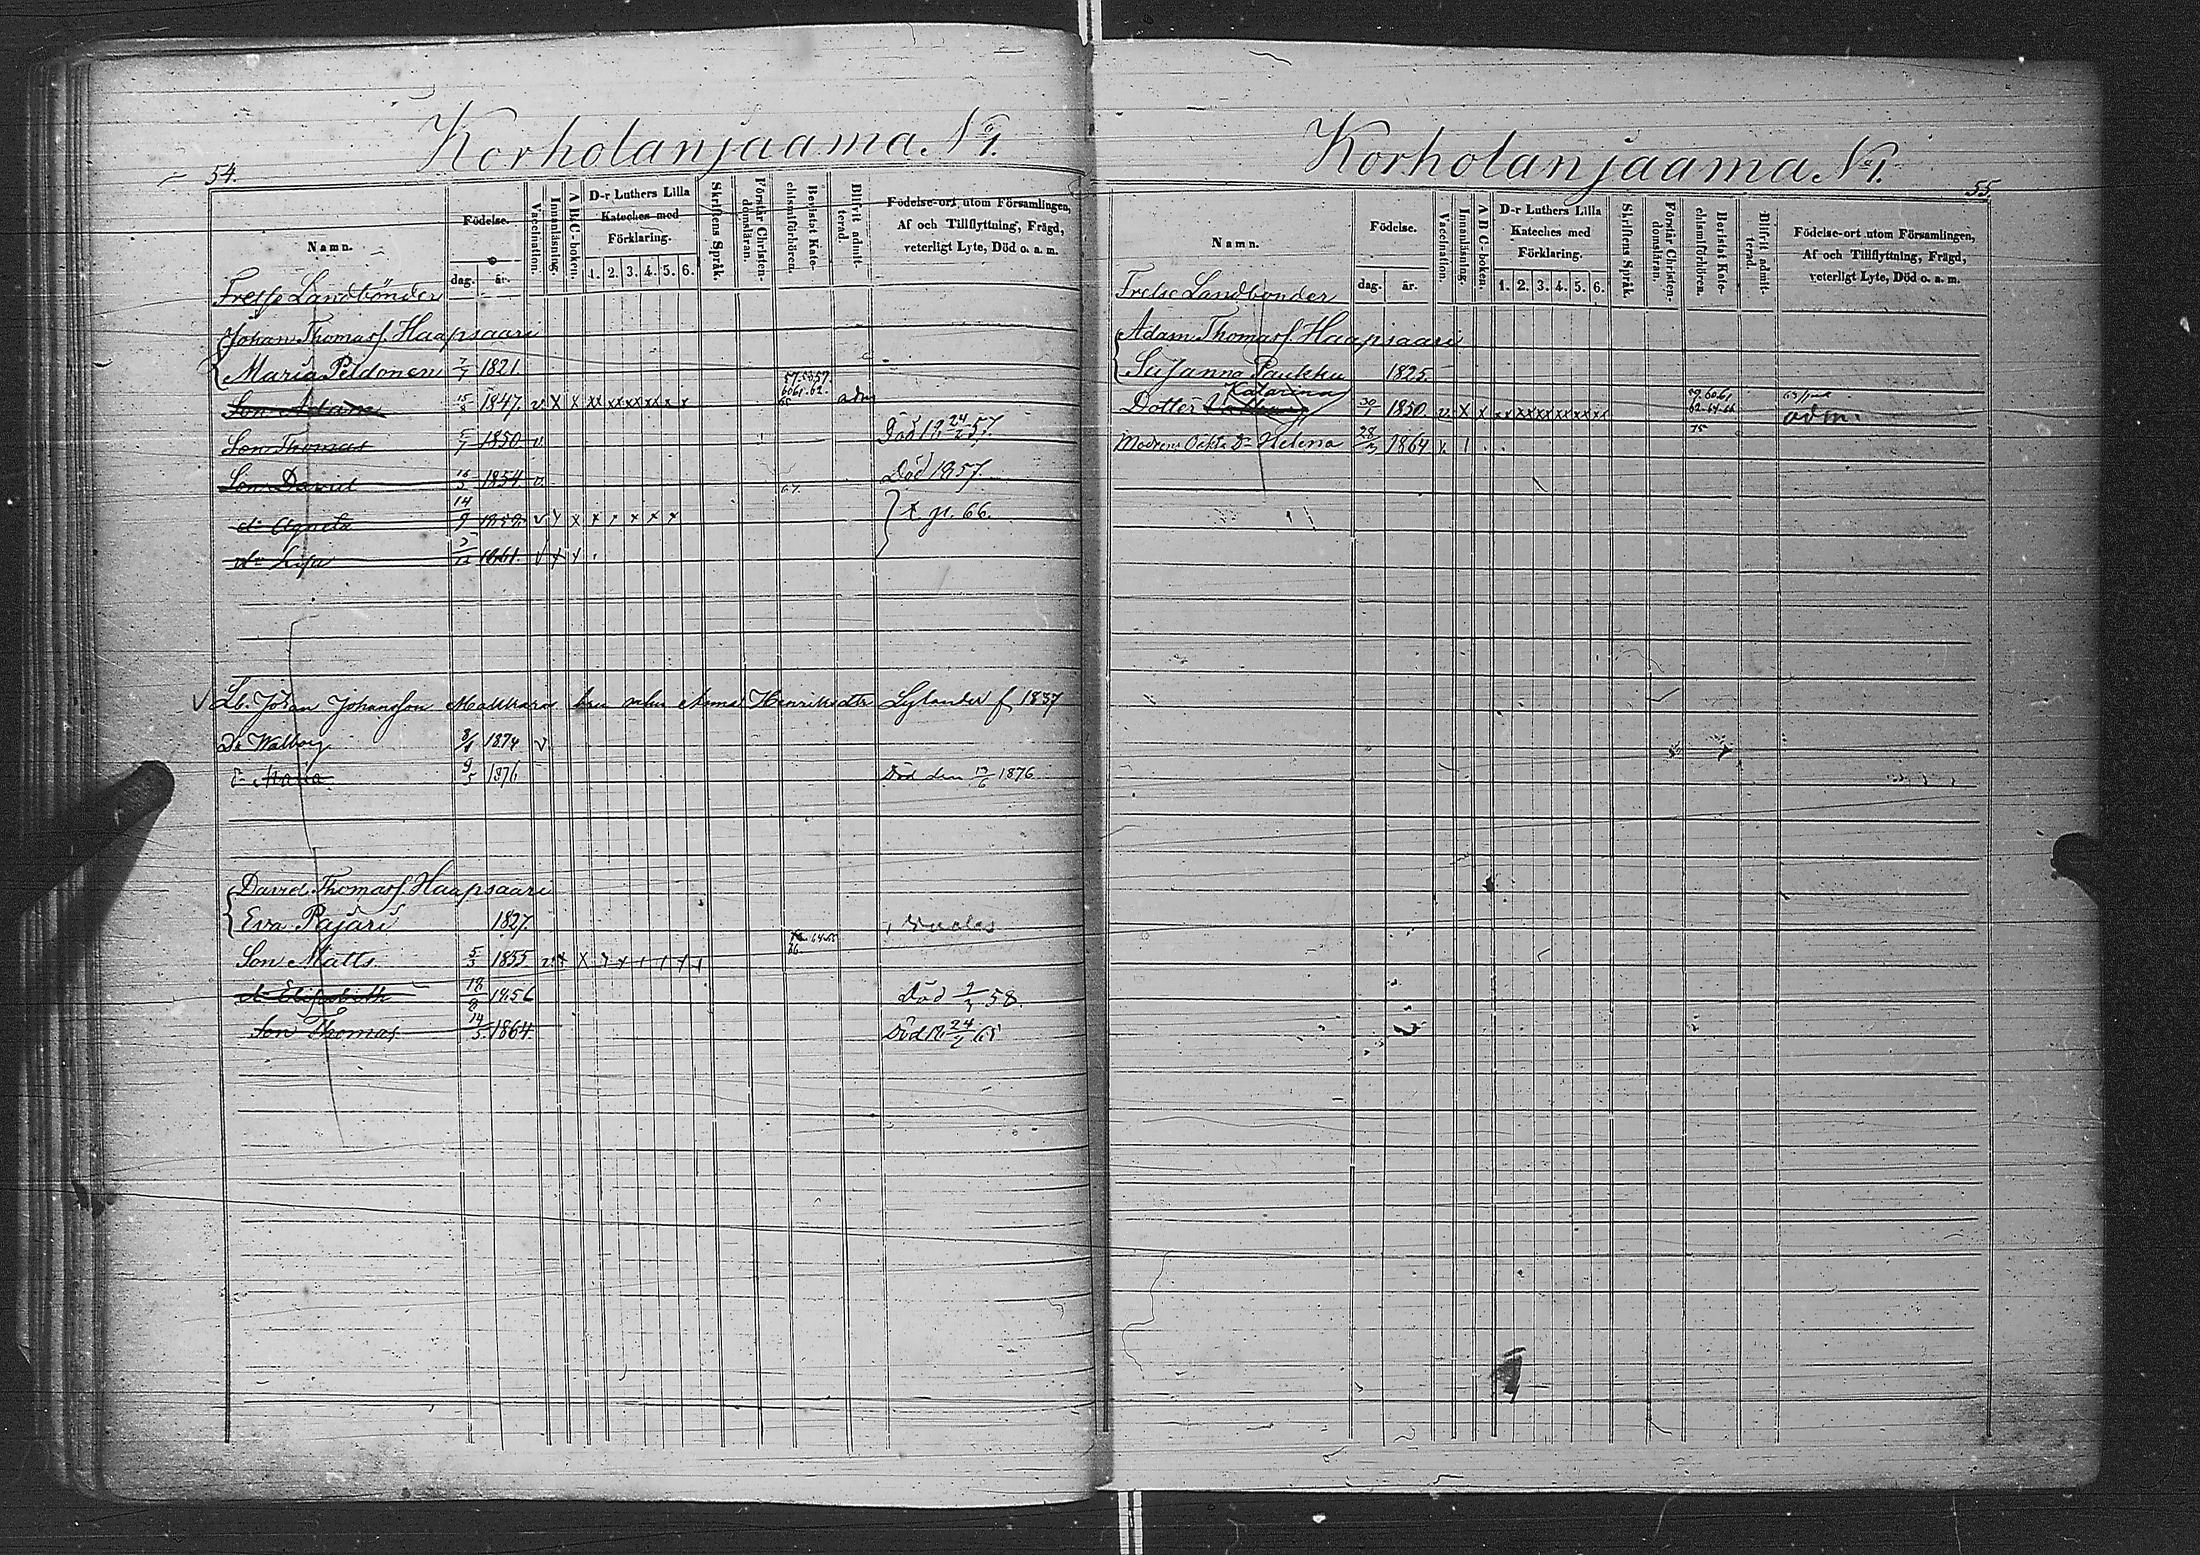 54.
Korholanjaama No 1.
Namn.
Födelse.
dag.
år.
Vaccination.
Innanläsning.
A B C-boken.
D-r Luthers Lilla
Kateches med
Förklaring.
1. 2. 3. 4. 5. 6.
Skriftens Språk.
Förstår Christen-
domsläran.
Bevistat Kate-
chismiförhören.
Blifvit admit-
terad.
Födelse-ort utom Församlingen,
Af och Tillflyttning, Frägd,
veterligt Lyte, Död o. a. m.
Frelse Landbönder
Johan Thomass. Haapsaari
Maria Peldonen 7/7 1821.
Son Adam 1847. v x x xx x x x x x x adm
Son Thomas 1850 v Död 24/2 57.
Son David 1854 v Död 1857.
dr Agneta 14/9 v x x x x x x x
dr Lisa 1861. v x x
Lb. Johan Johansson Anna Henriksdtr Lylander f 1837
Dr Walborg 1874 v
Maria 9/5 1876 Död den 1876
David Thomass. Haapsaari
Eva Pajari 1827.
Son Matts 5/3 1855 v x x
dr Elisabeth 18/8 1856 Död 58.
Son Thomas 14/5 1864 Död 24/2 65
Korholanjaama No 1.
55
Namn.
Födelse.
dag.
år.
Vaccination.
Innanläsning.
A B C-boken.
D-r Luthers Lilla
Kateches med
Förklaring.
1. 2. 3. 4. 5. 6.
Skriftens Språk.
Förstår Christen-
domsläran.
Bevistat Kate-
chismiförhören.
Blifvit admit-
terad.
Födelse-ort utom Församlingen,
Af och Tillflyttning, Frägd,
veterligt Lyte, Död o. a. m.
Frelse Landbonder
Adam Thomass. Haapsaari
Susanna Paukku 1825.
Katarina
Dotter 1850 v x x xx x x x x x x adm.
Dr Helena 28/3 1864 v.